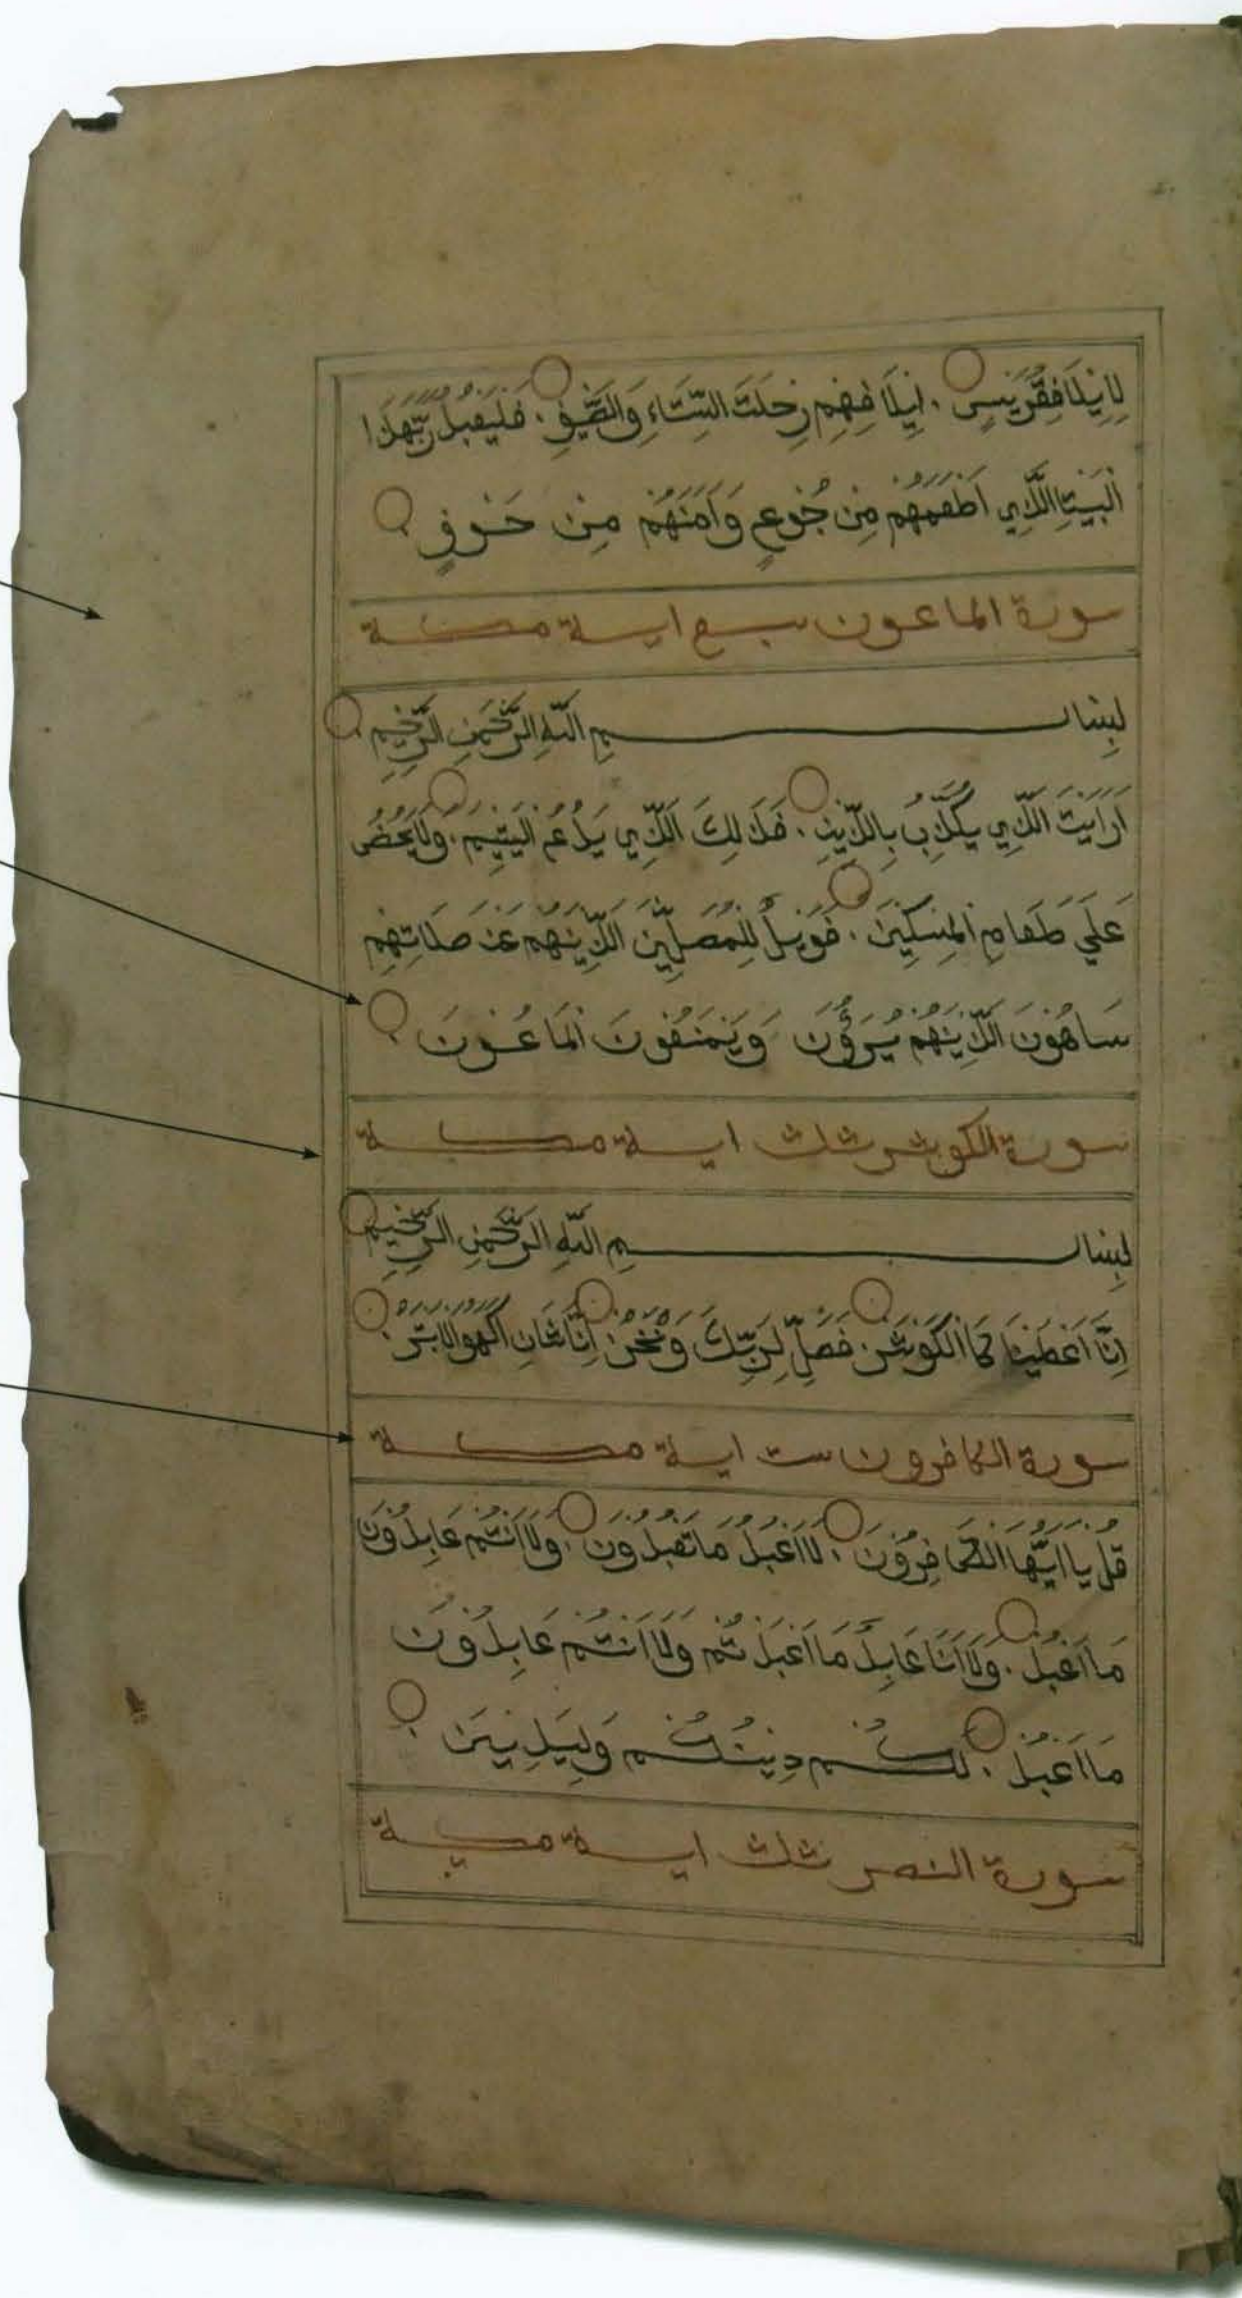 لِاِيْلَافِقُرَيْسٍ . اِيْلَافِهِمْ رِحْلَتَ الشِّتَاءِ وَالصَّيْفِ . فَلْيَعْبُدُ رَبَّهَذَا
الْبَيْتِ الَّذِي اَطْعَمَهُمْ مِنْ جُوْعٍ وَاَمَنَهُمْ مِنْ خَوْفٍ
سورة الماعون سبع اية مكة
بِسْمِ اللّٰهِ الرَّحْمٰنِ الرَّحِيْمِ
اَرَاَيْتَ الَّذِي يُكَذِّبُ بِالدِّيْنِ . فَذَلِكَ الَّذِي يَدُعُّ الْيَتِيْمَ . وَلَا يَحُضُّ
عَلَي طَعَامِ الْمِسْكِيْنَ . فَوَيْلٌ لِلْمُصَلِّيْنَ الَّذِيْنَهُمْ عَنْ صَلَاتِهِمْ
سَاهُوْنَ الَّذِيْنَهُمْ يُسَرَؤُنَ وَيَمْنَعُونَ الْمَاعُوْنَ
سورة الكوثر ثلث اية مكة
بِسْمِ اللّٰهِ الرَّحْمٰنِ الرَّحِيْمِ
اِنَّا اَعْطَيْنَا كَمَا الْكَوْثَرْ . فَصَلِّ لِرَبِّكَ وَنْحَرْ . اِنَّا شَانِ اكَهُوَالْاَبْتَرُ .
سورة الكافرون ست اية مكة
قُلْ يَا اَيُّهَا الْكَافِرُوْنَ . لَا اَعْبُدُ مَا تَعْبُدُوْنَ . وَلَا اَنْتُمْ عَابِدُوْنَ
مَا اَعْبُدُ . وَلَا اَنَا عَابِدٌ مَا اَعْبَدْ تُمْ وَلَا اَنْتُمْ عَابِدُوْنَ
مَا اَعْبُدُ . لَكُمْ دِيْنُكُمْ وَلِيَدِيْنَ .
سورة النصر ثلث اية مكية